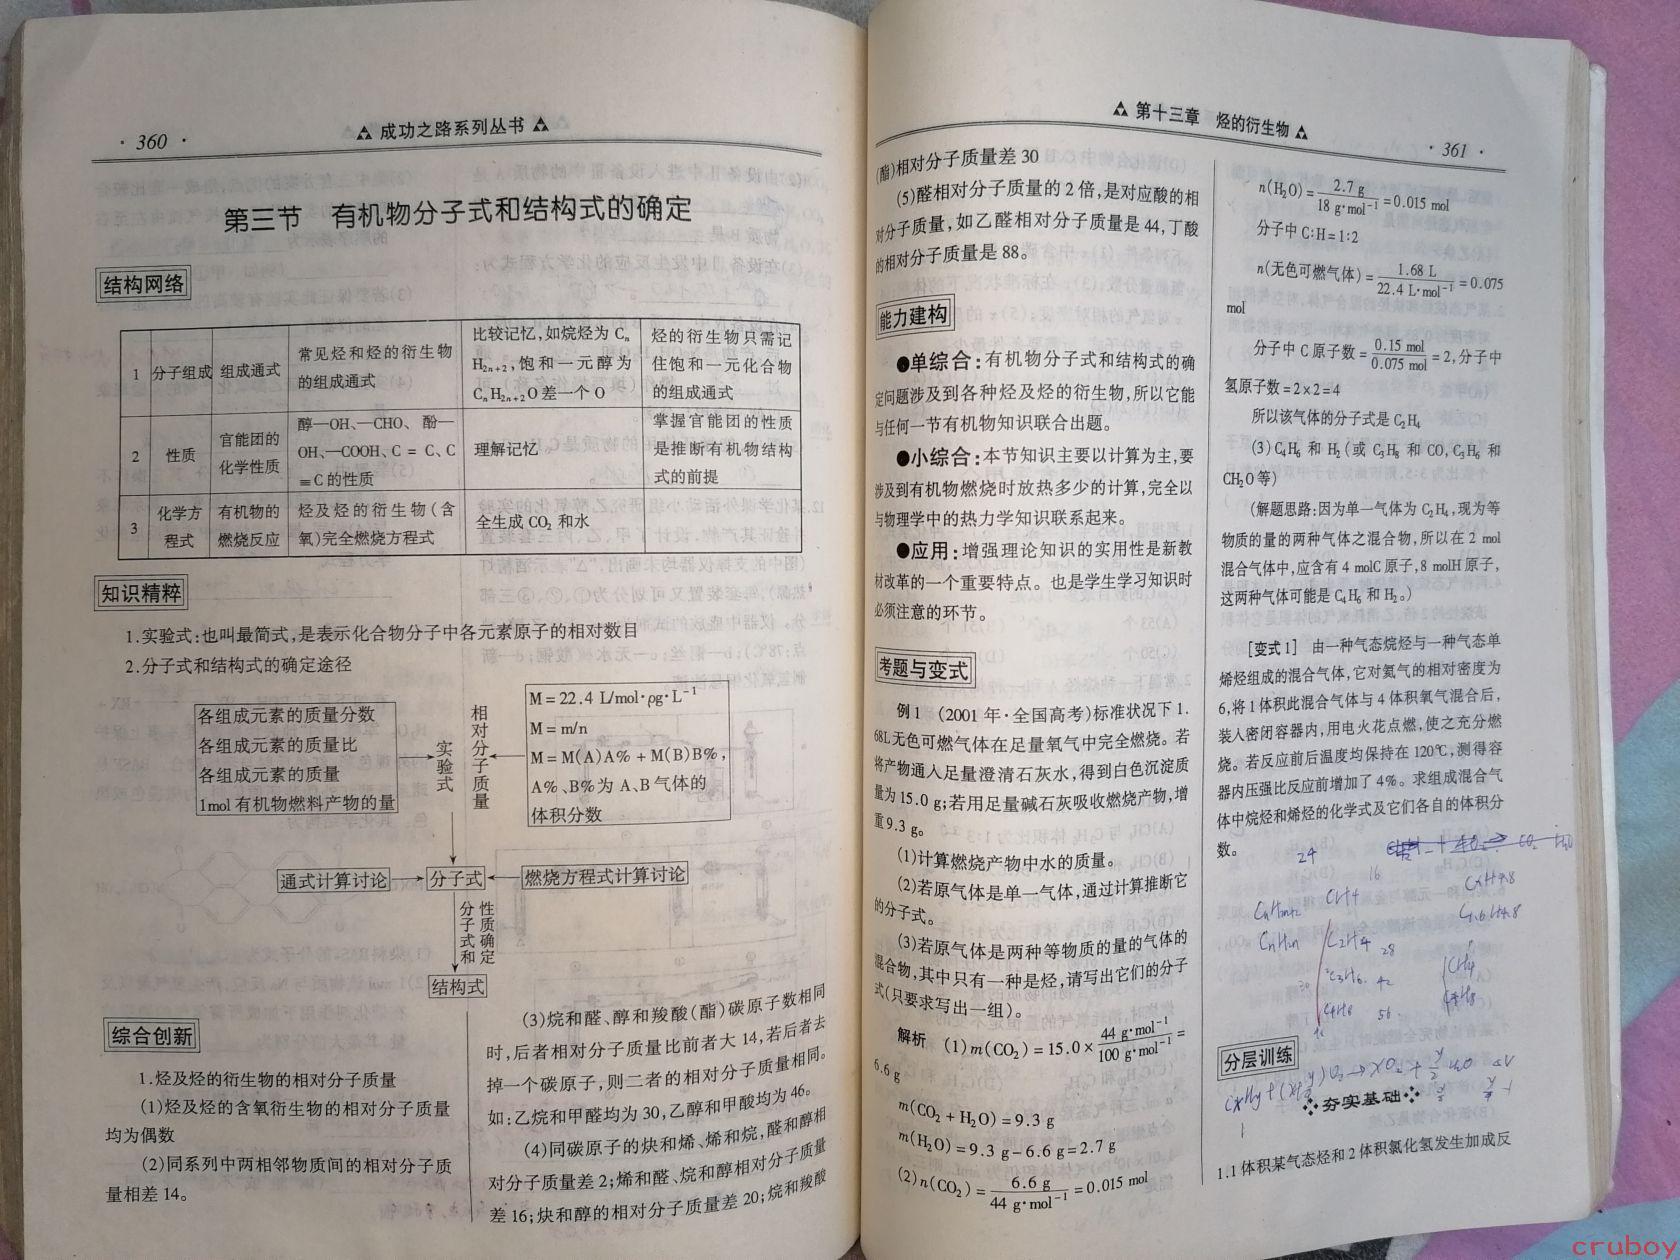 · 360 ·
成功之路系列丛书
第三节 有机物分子式和结构式的确定
结构网络
1 分子组成 组成通式 常见烃和烃的衍生物的组成通式 比较记忆,如烷烃为 CnH2n+2,饱和一元醇为 CnH2n+2O差一个 O 烃的衍生物只需记住饱和一元化合物的组成通式
2 性质 官能团的化学性质 醇—OH、—CHO、 酚—OH、—COOH、C = C、C≡C的性质 理解记忆 掌握官能团的性质是推断有机物结构式的前提
3 化学方程式 有机物的燃烧反应 烃及烃的衍生物(含氧)完全燃烧方程式 全生成 CO2 和水
知识精粹
1.实验式:也叫最简式,是表示化合物分子中各元素原子的相对数目
2.分子式和结构式的确定途径
各组成元素的质量分数
各组成元素的质量比
各组成元素的质量
1mol有机物燃料产物的量
实验式
相对分子质量
M=22.4 L/mol·ρg·L−1
M=m/n
M=M(A)A%+M(B)B%,
A%、B%为 A、B气体的
体积分数
通式计算讨论
分子式
燃烧方程式计算讨论
分子式和
性质确定
结构式
综合创新
1.烃及烃的衍生物的相对分子质量
(1)烃及烃的含氧衍生物的相对分子质量
均为偶数
(2)同系列中两相邻物质间的相对分子质
量相差 14。
(3)烷和醛、醇和羧酸(酯)碳原子数相同
时,后者相对分子质量比前者大 14,若后者去
掉一个碳原子,则二者的相对分子质量相同。
如:乙烷和甲醛均为 30,乙醇和甲酸均为 46。
(4)同碳原子的炔和烯、烯和烷,醛和醇相
对分子质量差 2;烯和醛、烷和醇相对分子质量
差 16;炔和醇的相对分子质量差 20;烷和羧酸
第十三章 烃的衍生物
· 361 ·
(酯)相对分子质量差 30
(5)醛相对分子质量的 2倍,是对应酸的相
对分子质量,如乙醛相对分子质量是 44,丁酸
的相对分子质量是 88。
能力建构
●单综合:有机物分子式和结构式的确
定问题涉及到各种烃及烃的衍生物,所以它能
与任何一节有机物知识联合出题。
●小综合:本节知识主要以计算为主,要
涉及到有机物燃烧时放热多少的计算,完全以
与物理学中的热力学知识联系起来。
●应用:增强理论知识的实用性是新教
材改革的一个重要特点。也是学生学习知识时
必须注意的环节。
考题与变式
例 1 (2001 年·全国高考)标准状况下 1.
68L无色可燃气体在足量氧气中完全燃烧。若
将产物通人足量澄清石灰水,得到白色沉淀质
量为 15.0 g;若用足量碱石灰吸收燃烧产物,增
重 9.3 g。
(1)计算燃烧产物中水的质量。
(2)若原气体是单一气体,通过计算推断它
的分子式。
(3)若原气体是两种等物质的量的气体的
混合物,其中只有一种是烃,请写出它们的分子
式(只要求写出一组)。
解析 (1)m(CO2)=15.0×44 g·mol−1/100 g·mol−1=
6.6 g
m(CO2+H2O)=9.3 g
m(H2O)=9.3 g−6.6 g=2.7 g
(2)n(CO2)=6.6 g/44 g·mol−1=0.015 mol
n(H2O)=2.7 g/18 g·mol−1=0.015 mol
分子中 C:H=1:2
n(无色可燃气体)=1.68 L/22.4 L·mol−1=0.075
mol
分子中 C 原子数=0.15 mol/0.075 mol=2,分子中
氢原子数=2×2=4
所以该气体的分子式是 C2H4
(3)C4H6 和 H2(或 C3H8 和 CO,C3H6 和
CH2O等)
(解题思路:因为单一气体为 C2H4,现为等
物质的量的两种气体之混合物,所以在 2 mol
混合气体中,应含有 4 molC 原子,8 molH原子,
这两种气体可能是 C4H6 和 H2。)
[变式 1] 由一种气态烷烃与一种气态单
烯烃组成的混合气体,它对氦气的相对密度为
6,将 1 体积此混合气体与 4 体积氧气混合后,
装人密闭容器内,用电火花点燃,使之充分燃
烧。若反应前后温度均保持在 120℃,测得容
器内压强比反应前增加了 4%。求组成混合气
体中烷烃和烯烃的化学式及它们各自的体积分
数。
24
16
CH4
CnH2n+2
CnH2n
C2H4 28
C3H6 42
C4H8 56
CxH4.8
C1.6H4.8
CH4
C4H8
分层训练
夯实基础
1.1 体积某气态烃和 2 体积氯化氢发生加成反
cruboy